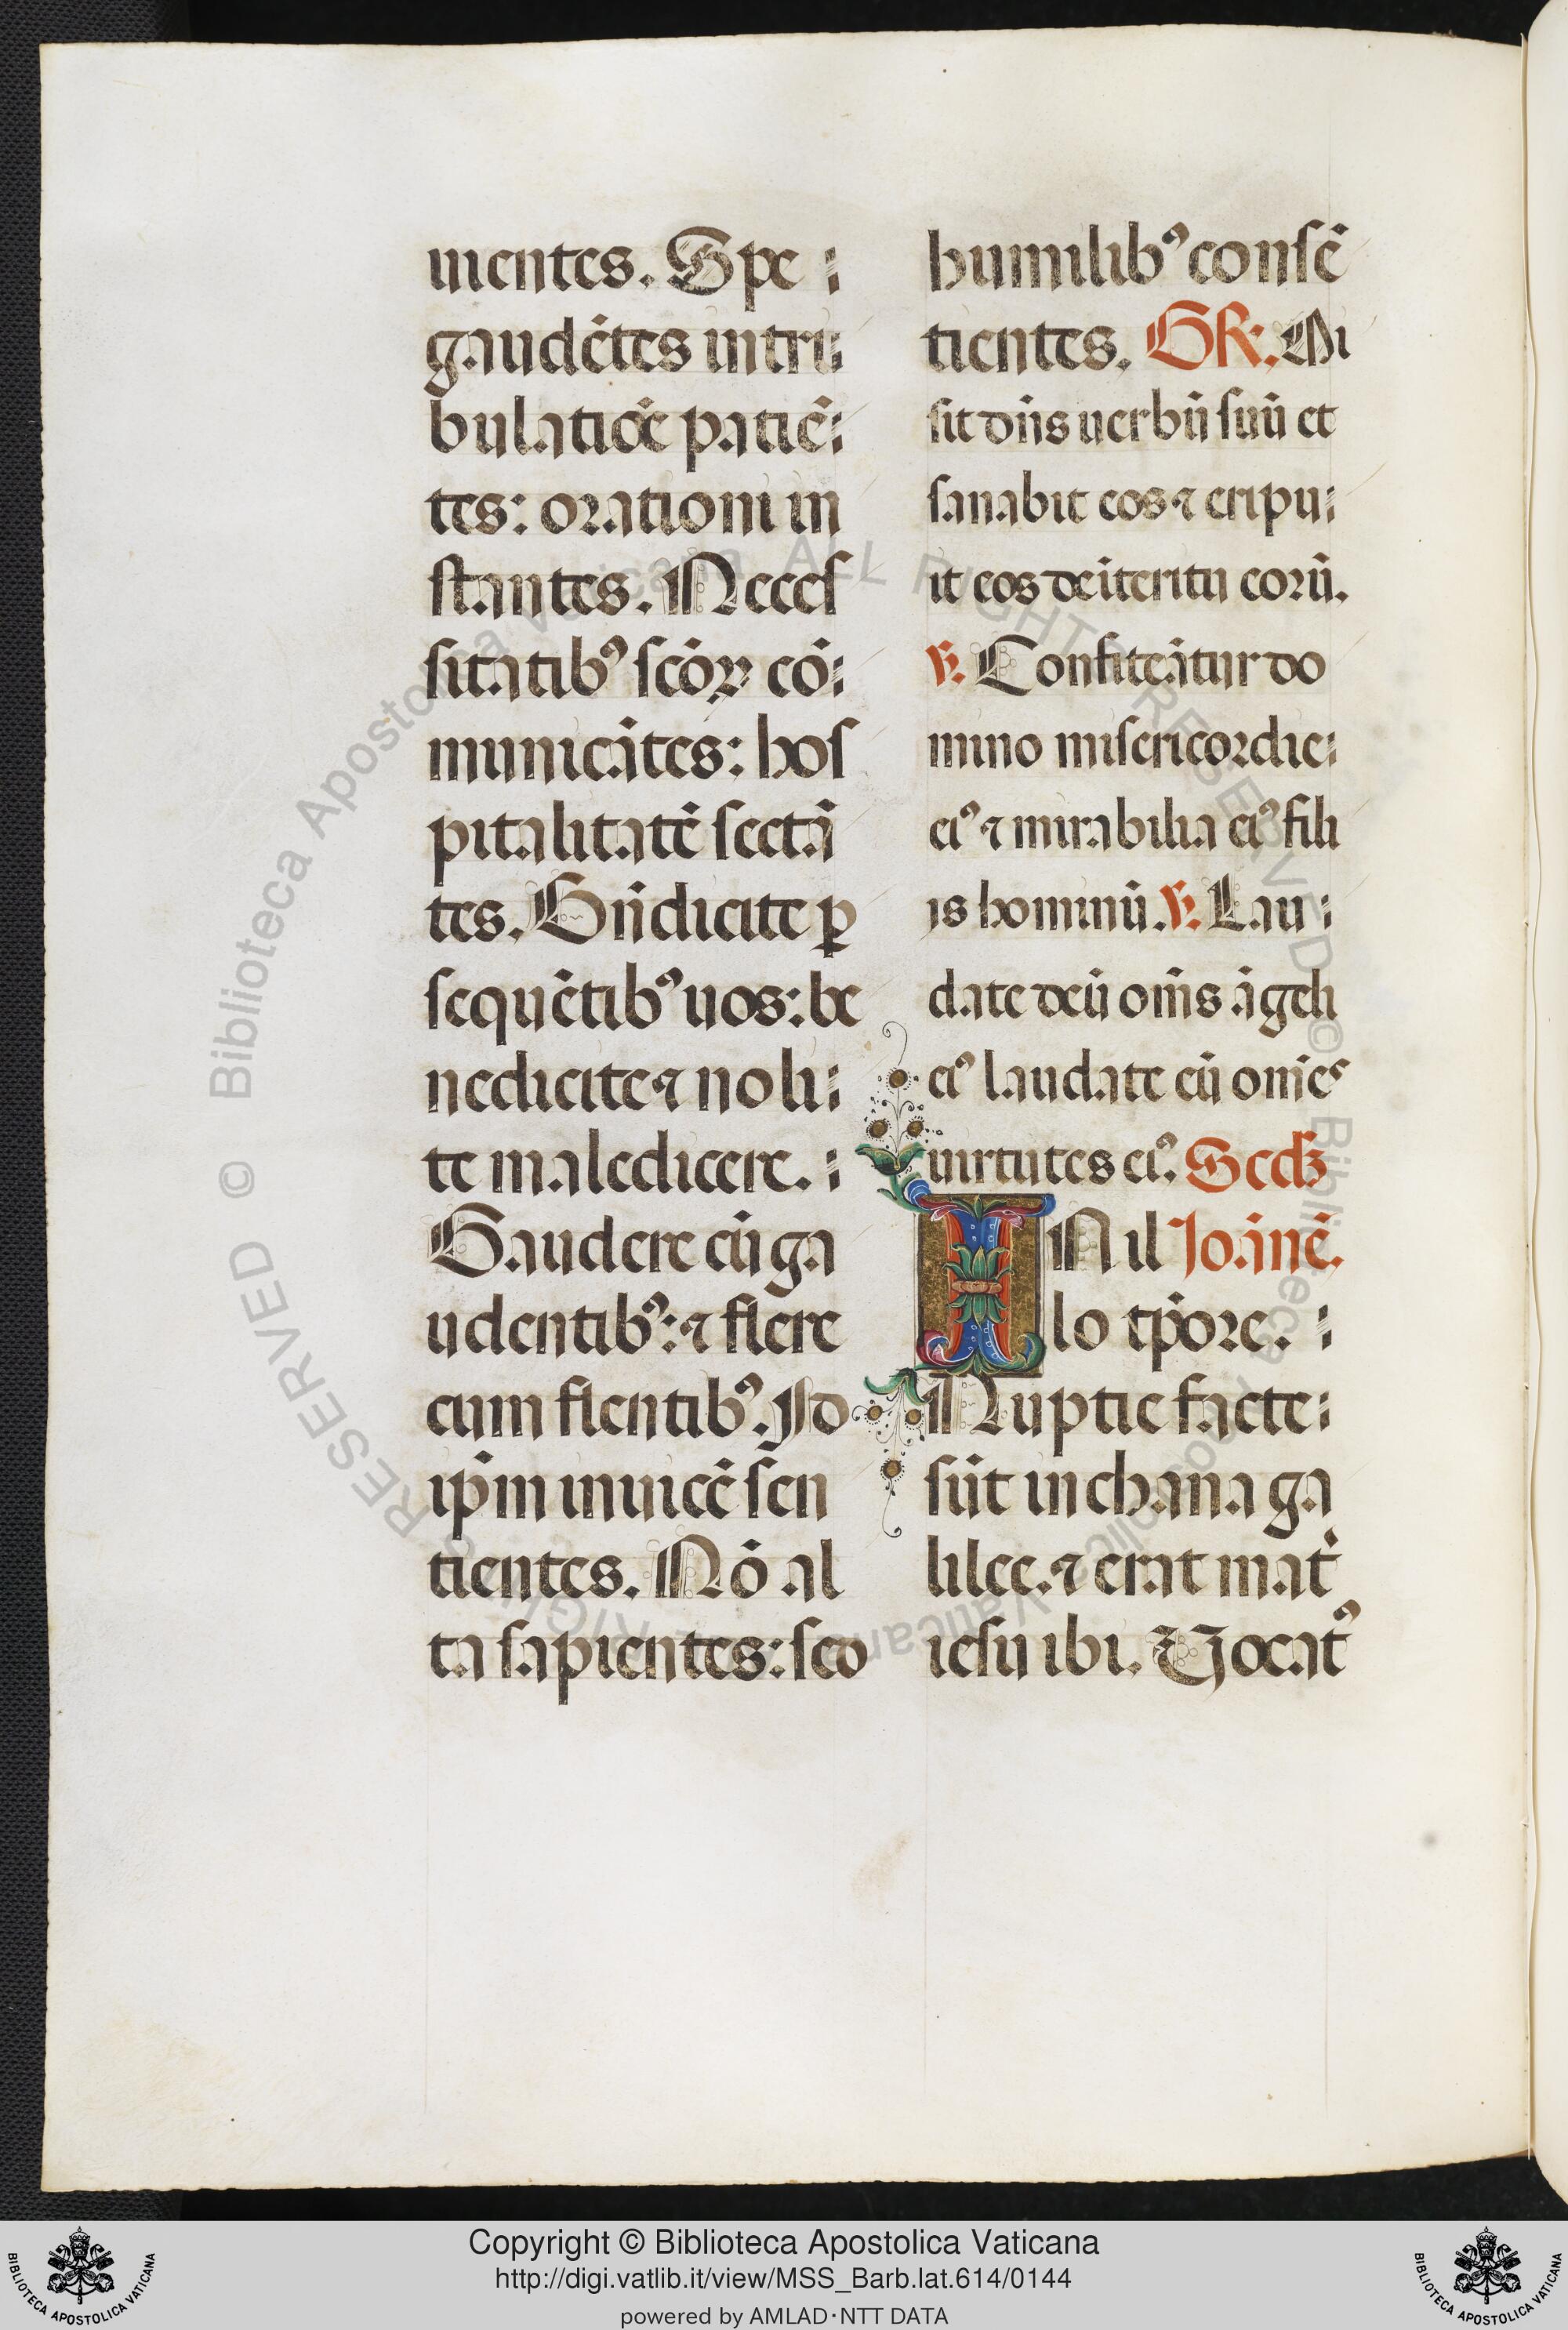 uientes. Spe
gaudētes in tri
bulatiōe patiē
tes: orationi in
stantes. Neces
sitatibꝰ scōꝝ cō
municātes: hos
pitalitatē sectā
tes. Bn̄dicite ꝑ
sequētibꝰ uos: be
nedicite ⁊ noli
te maledicere.
Gaudere cū ga
udentibꝰ: ⁊ flere
cum flentibꝰ. Id
ip̄m inuicē sen
tientes. Nō al
ta sapientes: sed
humilibꝰ consē
tientes. GR. Mi
sit dn̄s uerbū suū et
sanabit eos ⁊ eripu
it eos de īteritu eorū.
℣. Confiteātur do
mino misericordie
eiꝰ ⁊ mirabilia eiꝰ fili
is hominū. ℣. Lau
date deū om̄s āgeli
eiꝰ laudate eū om̄es
uirtutes eiꝰ. Secꝺꝫ
IN il Joānē.
lo tp̄ore.
Nuptie facte
sūt in chana ga
lilee. ⁊ erat mat̄
iesu ibi. Uocatꝰ
© Biblioteca Apostolica Vaticana ALL RIGHTS RESERVED © Biblioteca Apostolica Vaticana ALL RIGHTS RESERVED
Copyright © Biblioteca Apostolica Vaticana
http://digi.vatlib.it/view/MSS_Barb.lat.614/0144
powered by AMLAD·NTT DATA
BIBLIOTECA APOSTOLICA VATICANA
BIBLIOTECA APOSTOLICA VATICANA